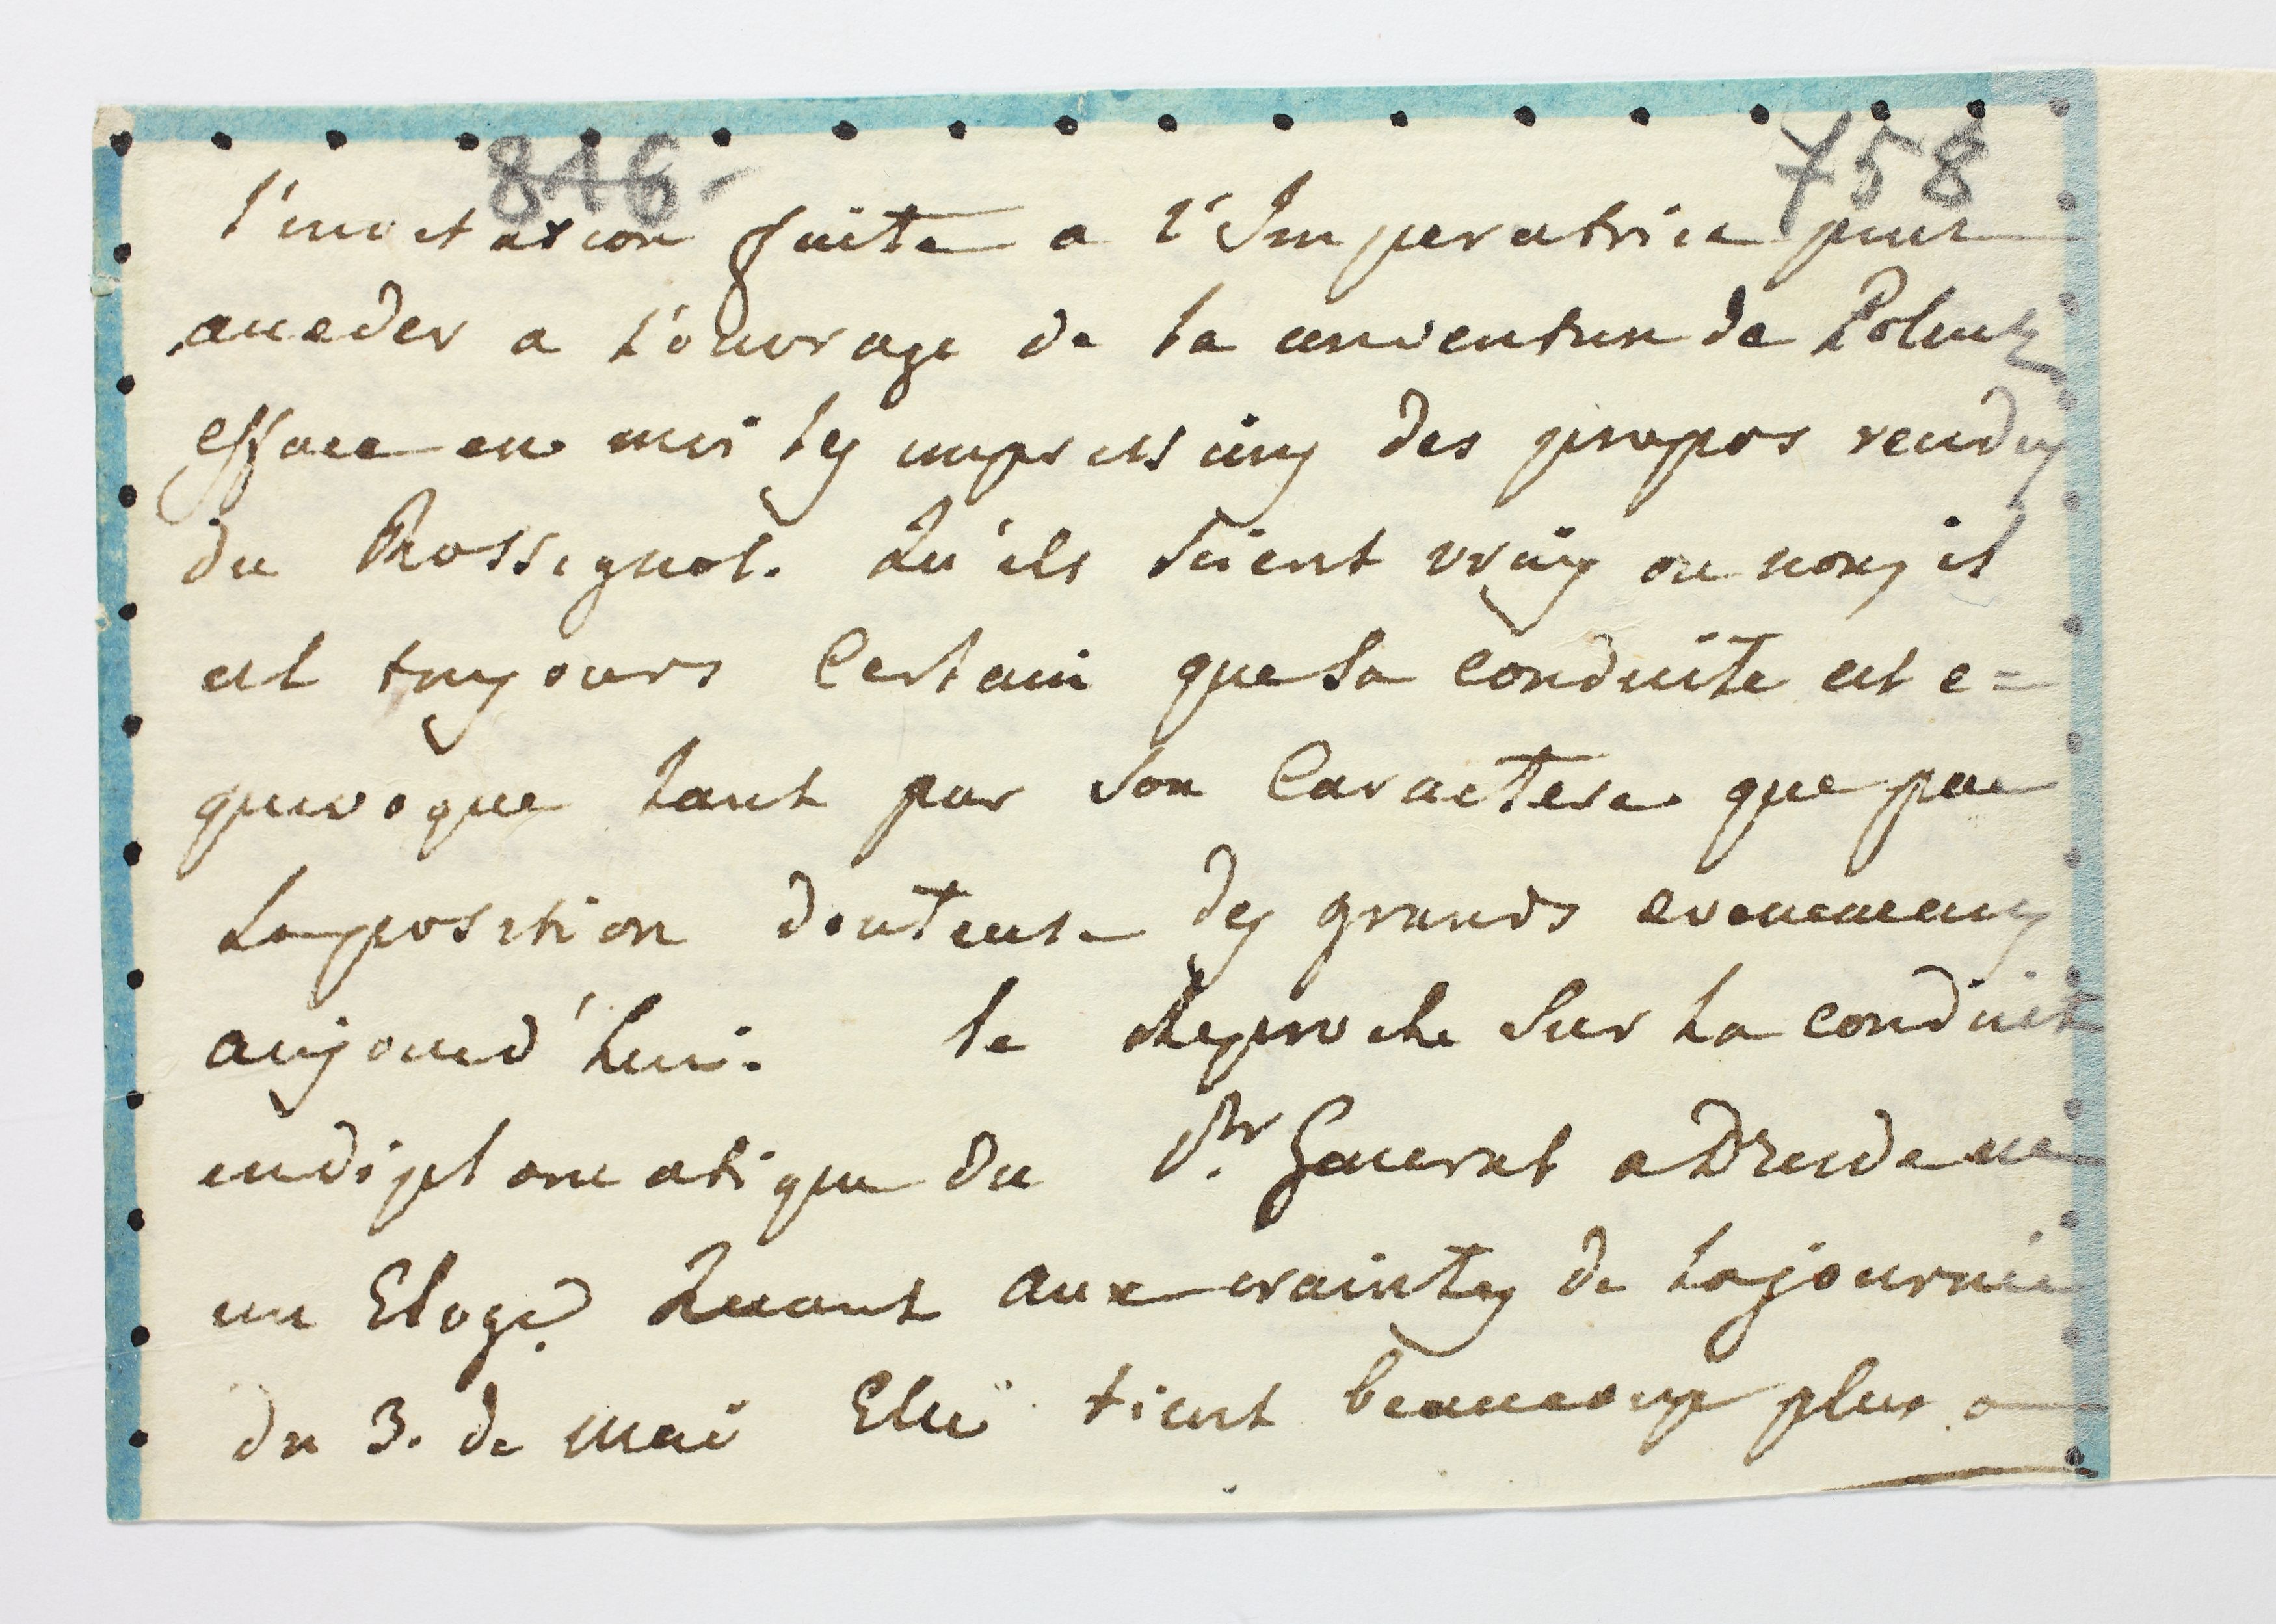 846-
758
l'invitation faite a l'Imperatrice pour
acceder a l'ouvrage de la convention de Polnitz
efface en moi les impressions des propos rendus
du Rossignol. Qu'ils soient vrais ou nons, il
est toujours certain que sa conduite est e=
quivoque tant par son Caractere que par
la position douteuse des grands evenemens
aujourd'hui. le Reproche sur la conduite
indiplomatique du Pr. General a Dresde
un Eloge. Quant aux craintes de la journée
du 3. de mai Elle tient beaucoup plus a